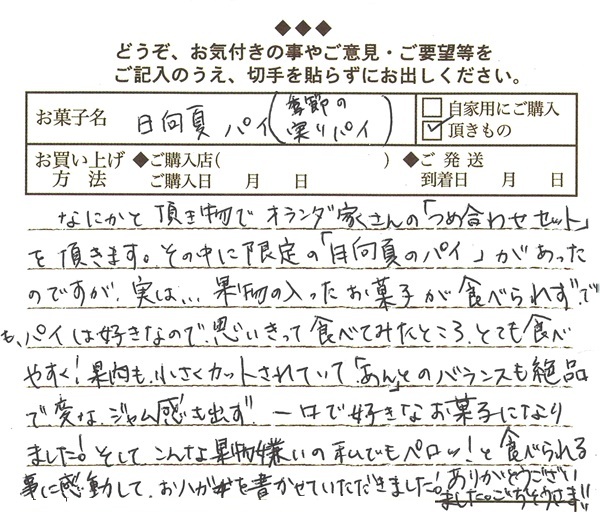 ◆◆◆
どうぞ、お気付きの事やご意見・ご要望等を
ご記入のうえ、切手を貼らずにお出しください。
お菓子名 日向夏パイ(季節の実りパイ) □自家用にご購入
☑頂きもの
お買い上げ方法 ◆ご購入店( ) ◆ご発送
ご購入日 月 日 到着日 月 日
なにかと頂き物でオランダ家さんの「つめ合わせセット」
を頂きます。その中に限定の「日向夏のパイ」があった
のですが、実は…果物の入ったお菓子が食べられず、で
も、パイは好きなので、思いきって食べてみたところ、とても食べ
やすく!果肉も、小さくカットされていて「あん」とのバランスも絶品
で変な、ジャム感も出ず、一口で好きなお菓子になり
ました!そして、こんな果物嫌いの私でもペロッ!と食べられる
事に感動して、おハガキを書かせていただきました!ありがとうござい
ました。ごちそうさま!!